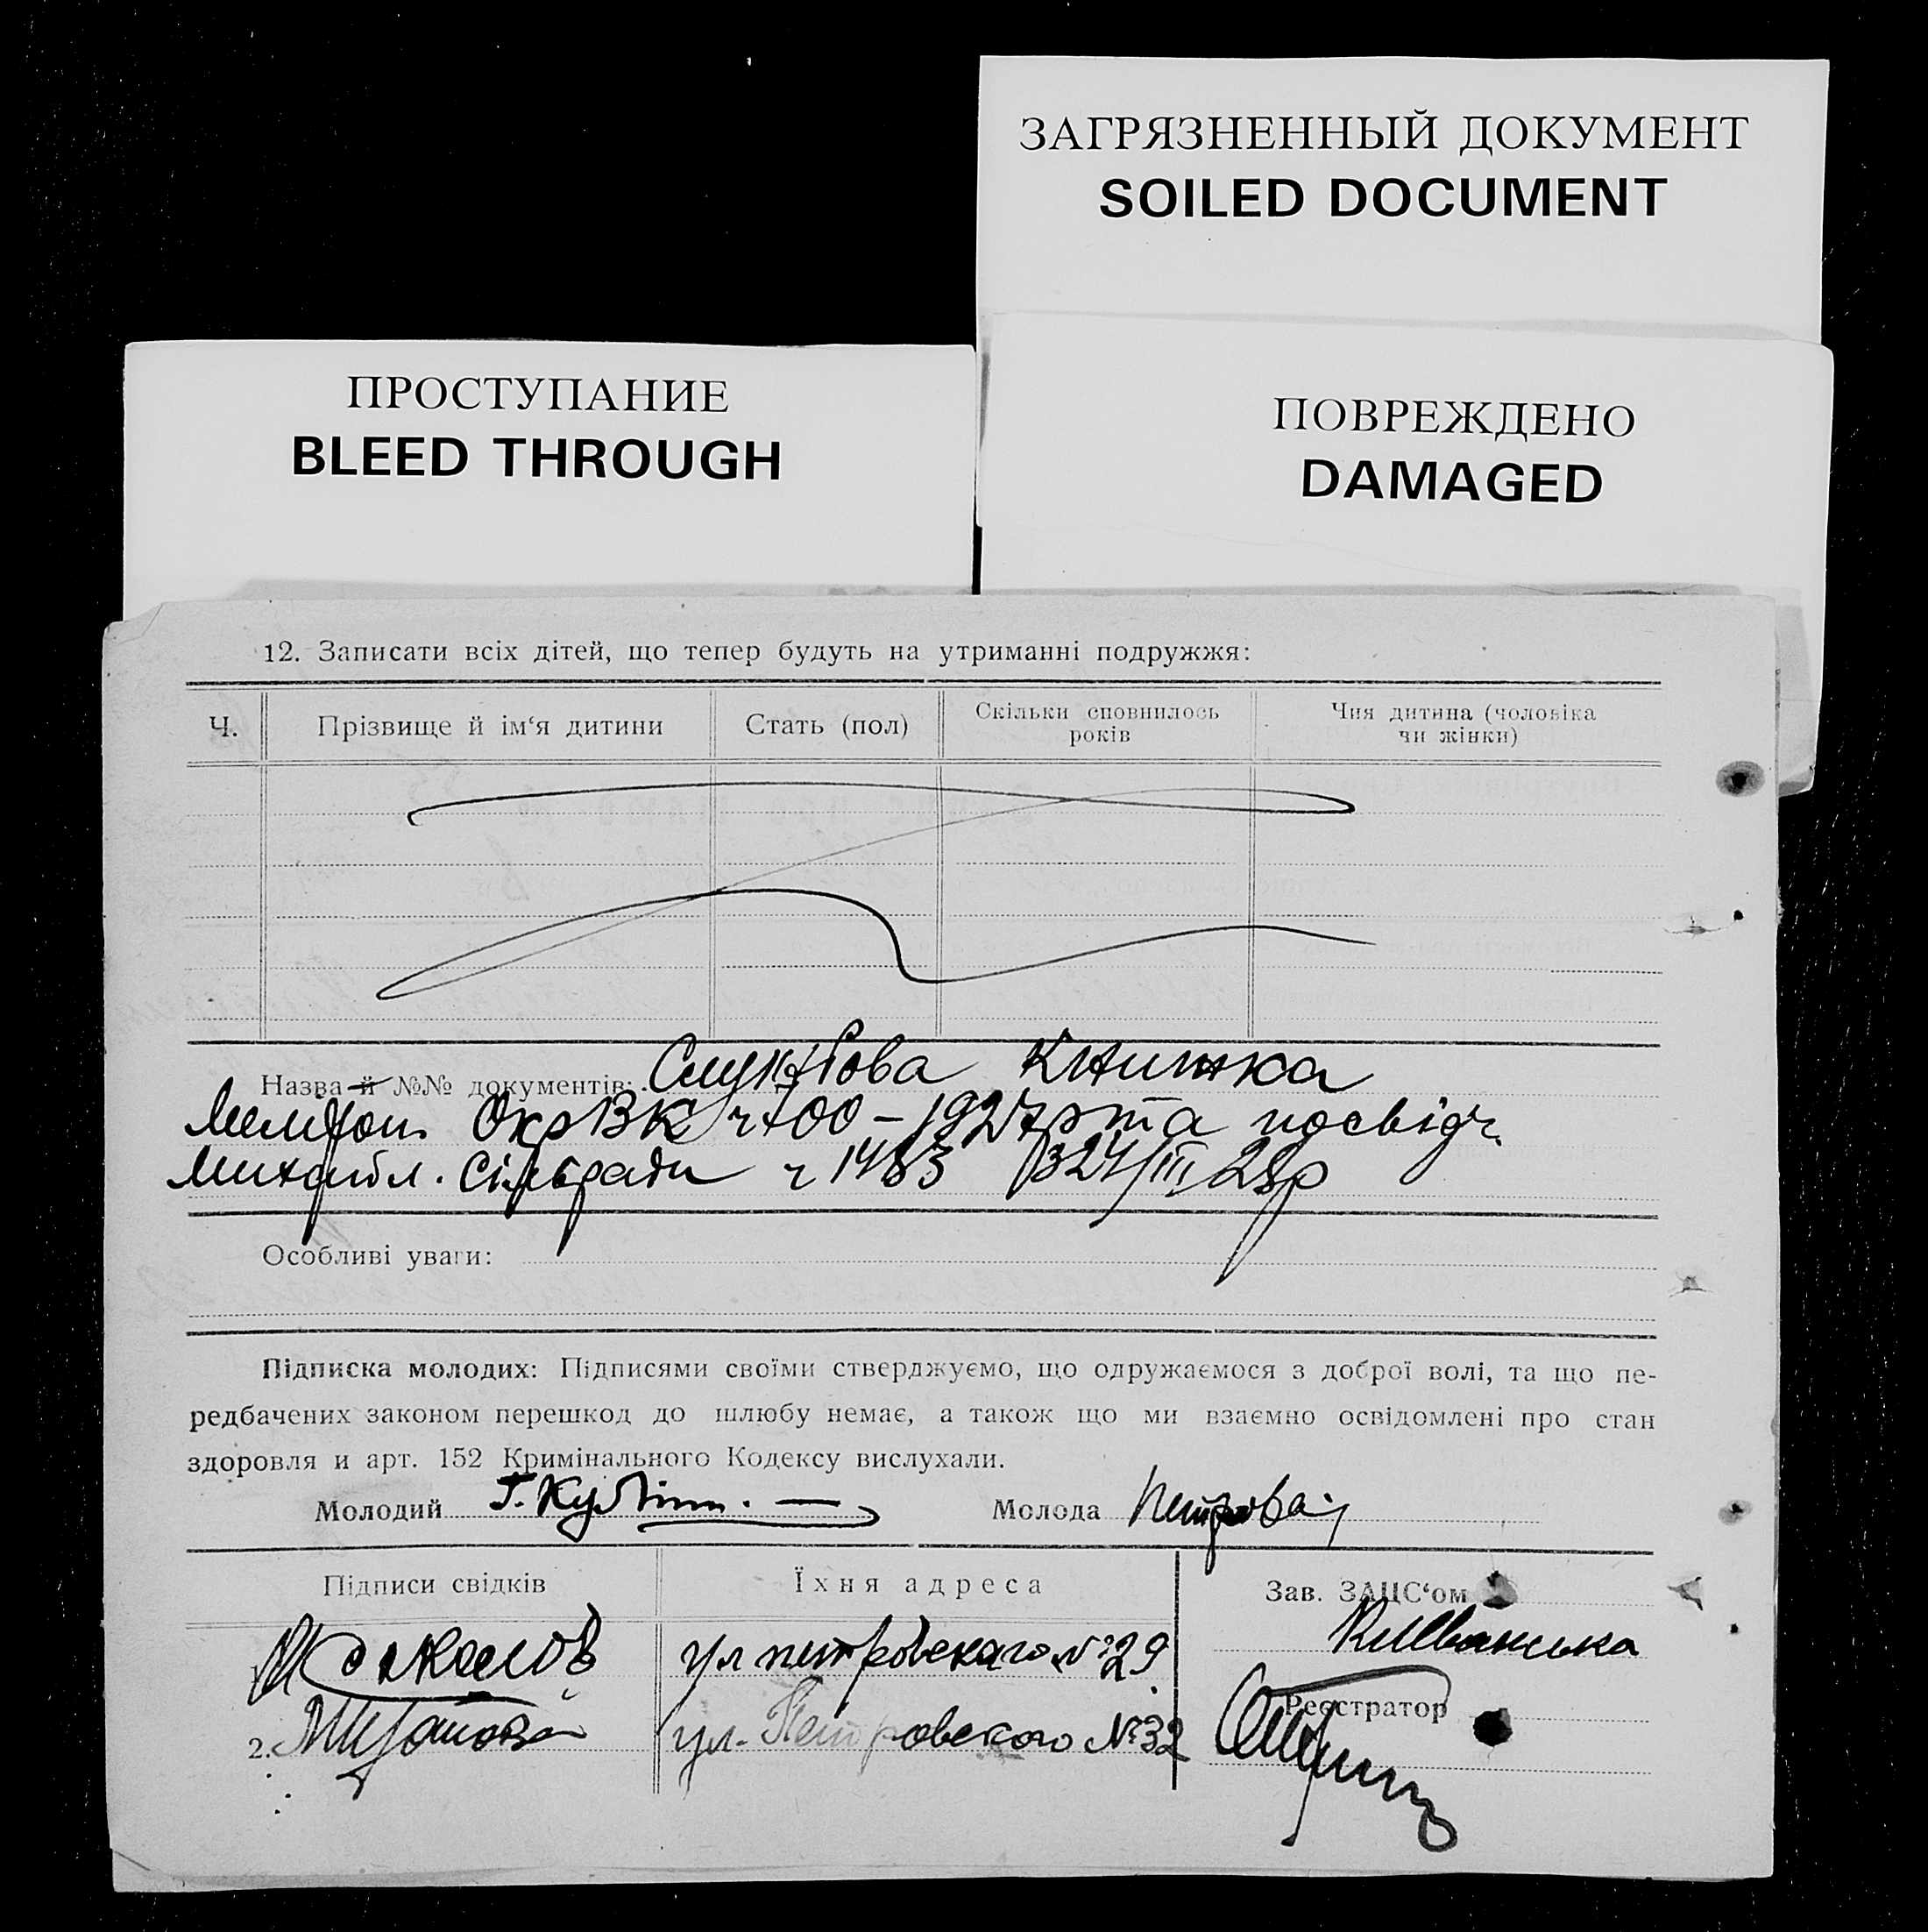 ЗАГРЯЗНЕННЫЙ ДОКУМЕНТ
SOILED DOCUMENT
ПРОСТУПАНИЕ
BLEED THROUGH
ПОВРЕЖДЕНО
DAMAGED
12. Записати всіх дітей, що тепер будуть на утриманні подружжя:
Ч.
Прізвище й ім‘я дитини
Стать (пол)
Скільки сповнилось
років
Чия дитина (чоловіка
чи жінки)
Назва й №№ документів: Службова Книжка
ОкрВК ч 700 – 1927 р та посвідч.
Михайл. Сільради ч 1483 в 24/III 28р
Особливі уваги:
Підписка молодих: Підписями своїми стверджуємо, що одружаємося з доброї волі, та що пе-
редбачених законом перешкод до шлюбу немає, а також що ми взаємно освідомлені про стан
здоровля и арт. 152 Кримінального Кодексу вислухали.
Молодий Молода Петрова
Підписи свідків
Їхня адреса
Зав. ЗАЦС‘ом
ул петровскаго №29
2. ул. Петровского №32
Реєстратор